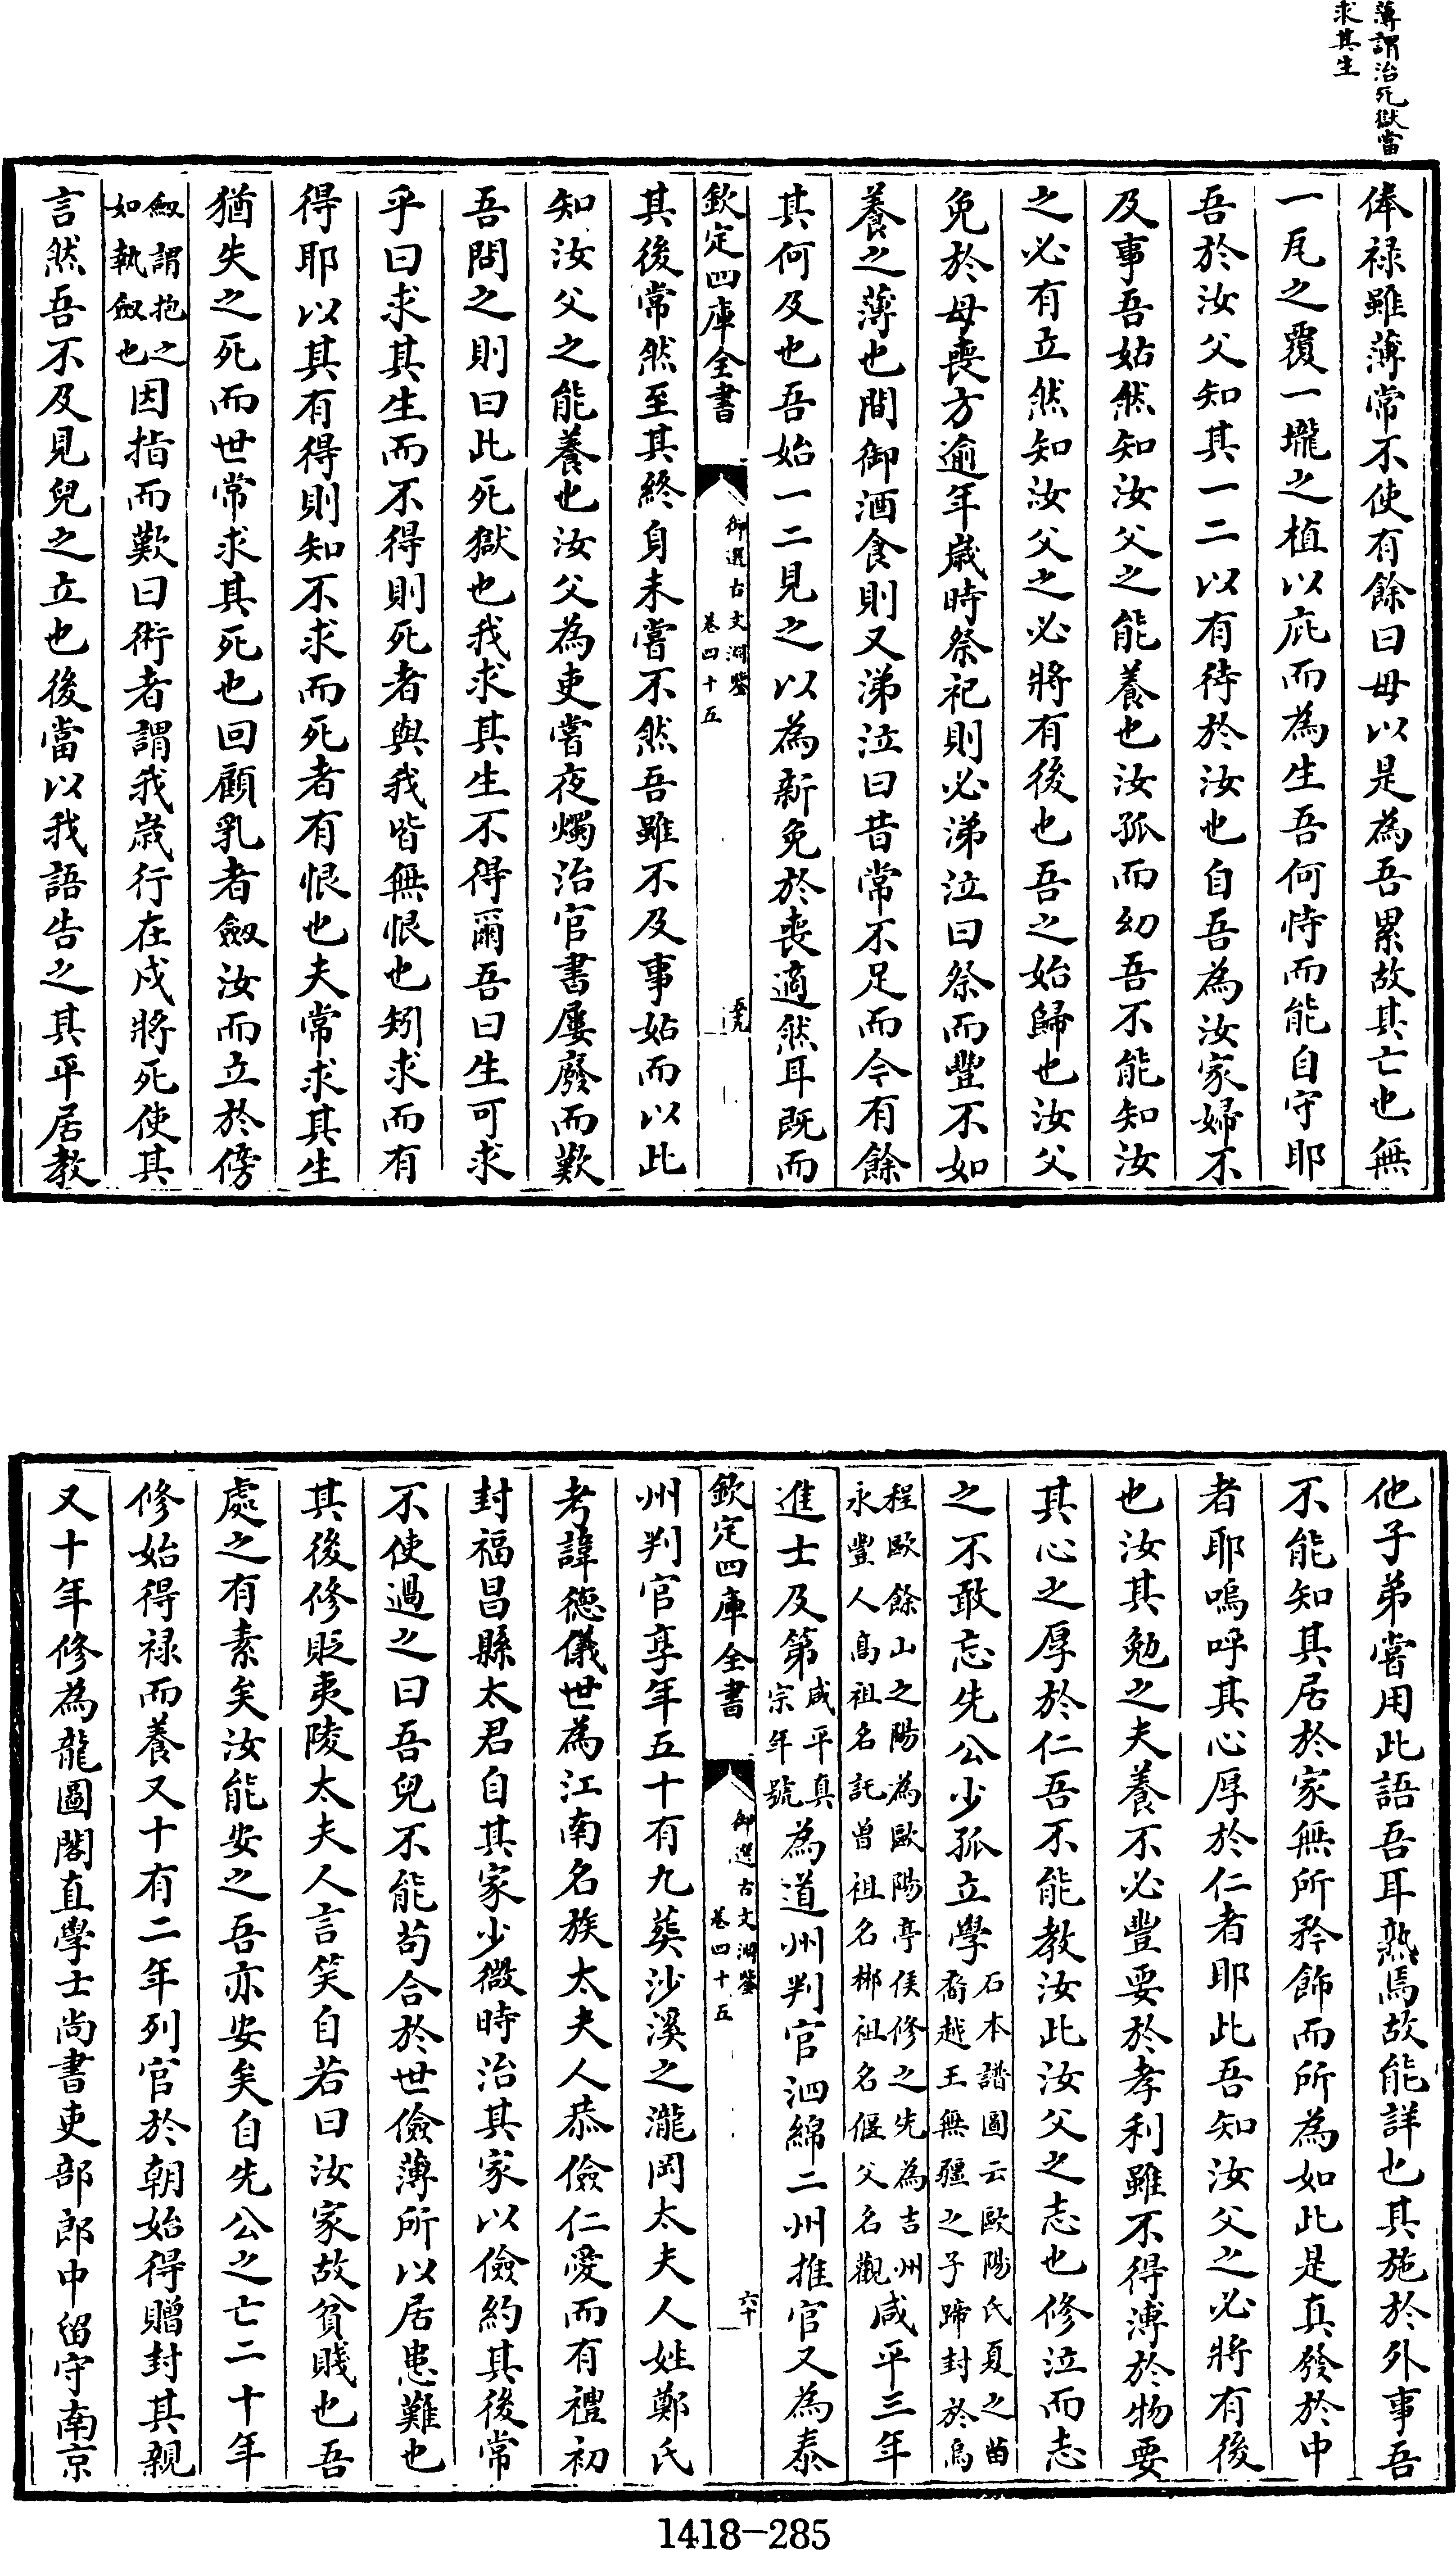 薄謂治死獄當
求其生
俸禄雖薄常不使有餘曰毋以是為吾累故其亡也無
一瓦之覆一壠之植以庇而為生吾何恃而能自守耶
吾於汝父知其一二以有待於汝也自吾為汝家婦不
及事吾姑然知汝父之能養也汝孤而幼吾不能知汝
之必有立然知汝父之必將有後也吾之始歸也汝父
免於母喪方逾年歲時祭祀則必涕泣曰祭而豐不如
養之薄也間御酒食則又涕泣曰昔常不足而今有餘
其何及也吾始一二見之以為新免於喪適然耳既而
欽定四庫全書
御選古文淵鑒
卷四十五
五九
其後常然至其終身未嘗不然吾雖不及事姑而以此
知汝父之能養也汝父為吏嘗夜燭治官書屢廢而歎
吾問之則曰此死獄也我求其生不得爾吾曰生可求
乎曰求其生而不得則死者與我皆無恨也矧求而有
得耶以其有得則知不求而死者有恨也夫常求其生
猶失之死而世常求其死也回顧乳者劒汝而立於傍
劒謂抱之
如執劒也
因指而歎曰術者謂我歲行在戌將死使其
言然吾不及見兒之立也後當以我語告之其平居教
他子弟嘗用此語吾耳熟焉故能詳也其施於外事吾
不能知其居於家無所矜飾而所為如此是真發於中
者耶嗚呼其心厚於仁者耶此吾知汝父之必將有後
也汝其勉之夫養不必豐要於孝利雖不得溥於物要
其心之厚於仁吾不能教汝此汝父之志也修泣而志
之不敢忘先公少孤立學
石本譜圖云歐陽氏夏之苗
裔越王無疆之子蹄封於烏
程歐餘山之陽為歐陽亭侯修之先為吉州
永豐人高祖名託曾祖名郴祖名偃父名觀
咸平三年
進士及第
咸平真
宗年號
為道州判官泗綿二州推官又為泰
欽定四庫全書
御選古文淵鑒
卷四十五
六十
州判官享年五十有九葬沙溪之瀧岡太夫人姓鄭氏
考諱德儀世為江南名族太夫人恭儉仁愛而有禮初
封福昌縣太君自其家少微時治其家以儉約其後常
不使過之曰吾兒不能苟合於世儉薄所以居患難也
其後修貶夷陵太夫人言笑自若曰汝家故貧賤也吾
處之有素矣汝能安之吾亦安矣自先公之亡二十年
修始得禄而養又十有二年列官於朝始得贈封其親
又十年修為龍圖閣直學士尚書吏部郎中留守南京
1418-285